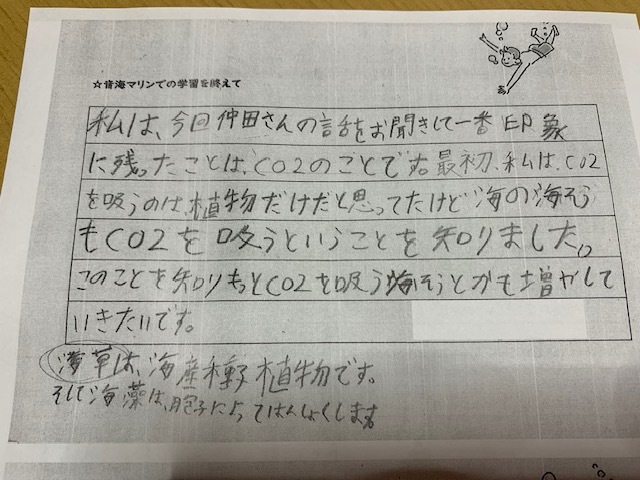 ☆青海マリンでの学習を終えて
私は、今回仲田さんの話をお聞きして一番印象
に残ったことは、CO2のことです。最初、私は、CO2
を吸うのは、植物だけだと思ってたけど海の海そう
もCO2を吸うということを知りました。
このことを知りもっとCO2を吸う海そうとかも増やして
いきたいです。
海草は、海産種子植物です。
そして海藻は、胞子によってはんしょくします。